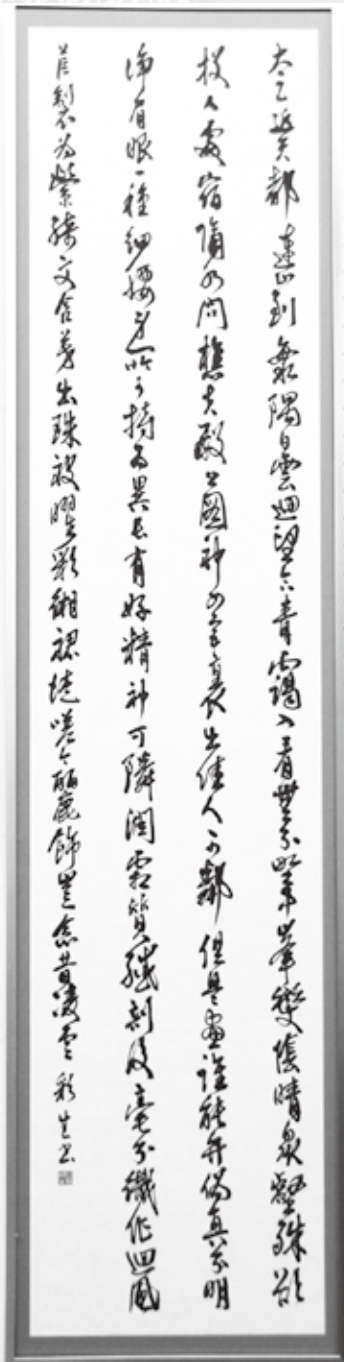 太乙近天都連山到海隅白雲迴望合青靄入看無分野中峯變陰晴衆壑殊欲
投人處宿隔水問樵夫殿上圖神女宮裏出佳人可憐俱是畫誰能辨偽真分明
淨眉眼一種細腰身所可持為異長有好精神可憐潤霜質纖剖復毫分織作迴風
苣製為縈綺文含芳出珠被曜彩緗裙徒嗟今麗飾豈念昔凌雲 彩生书